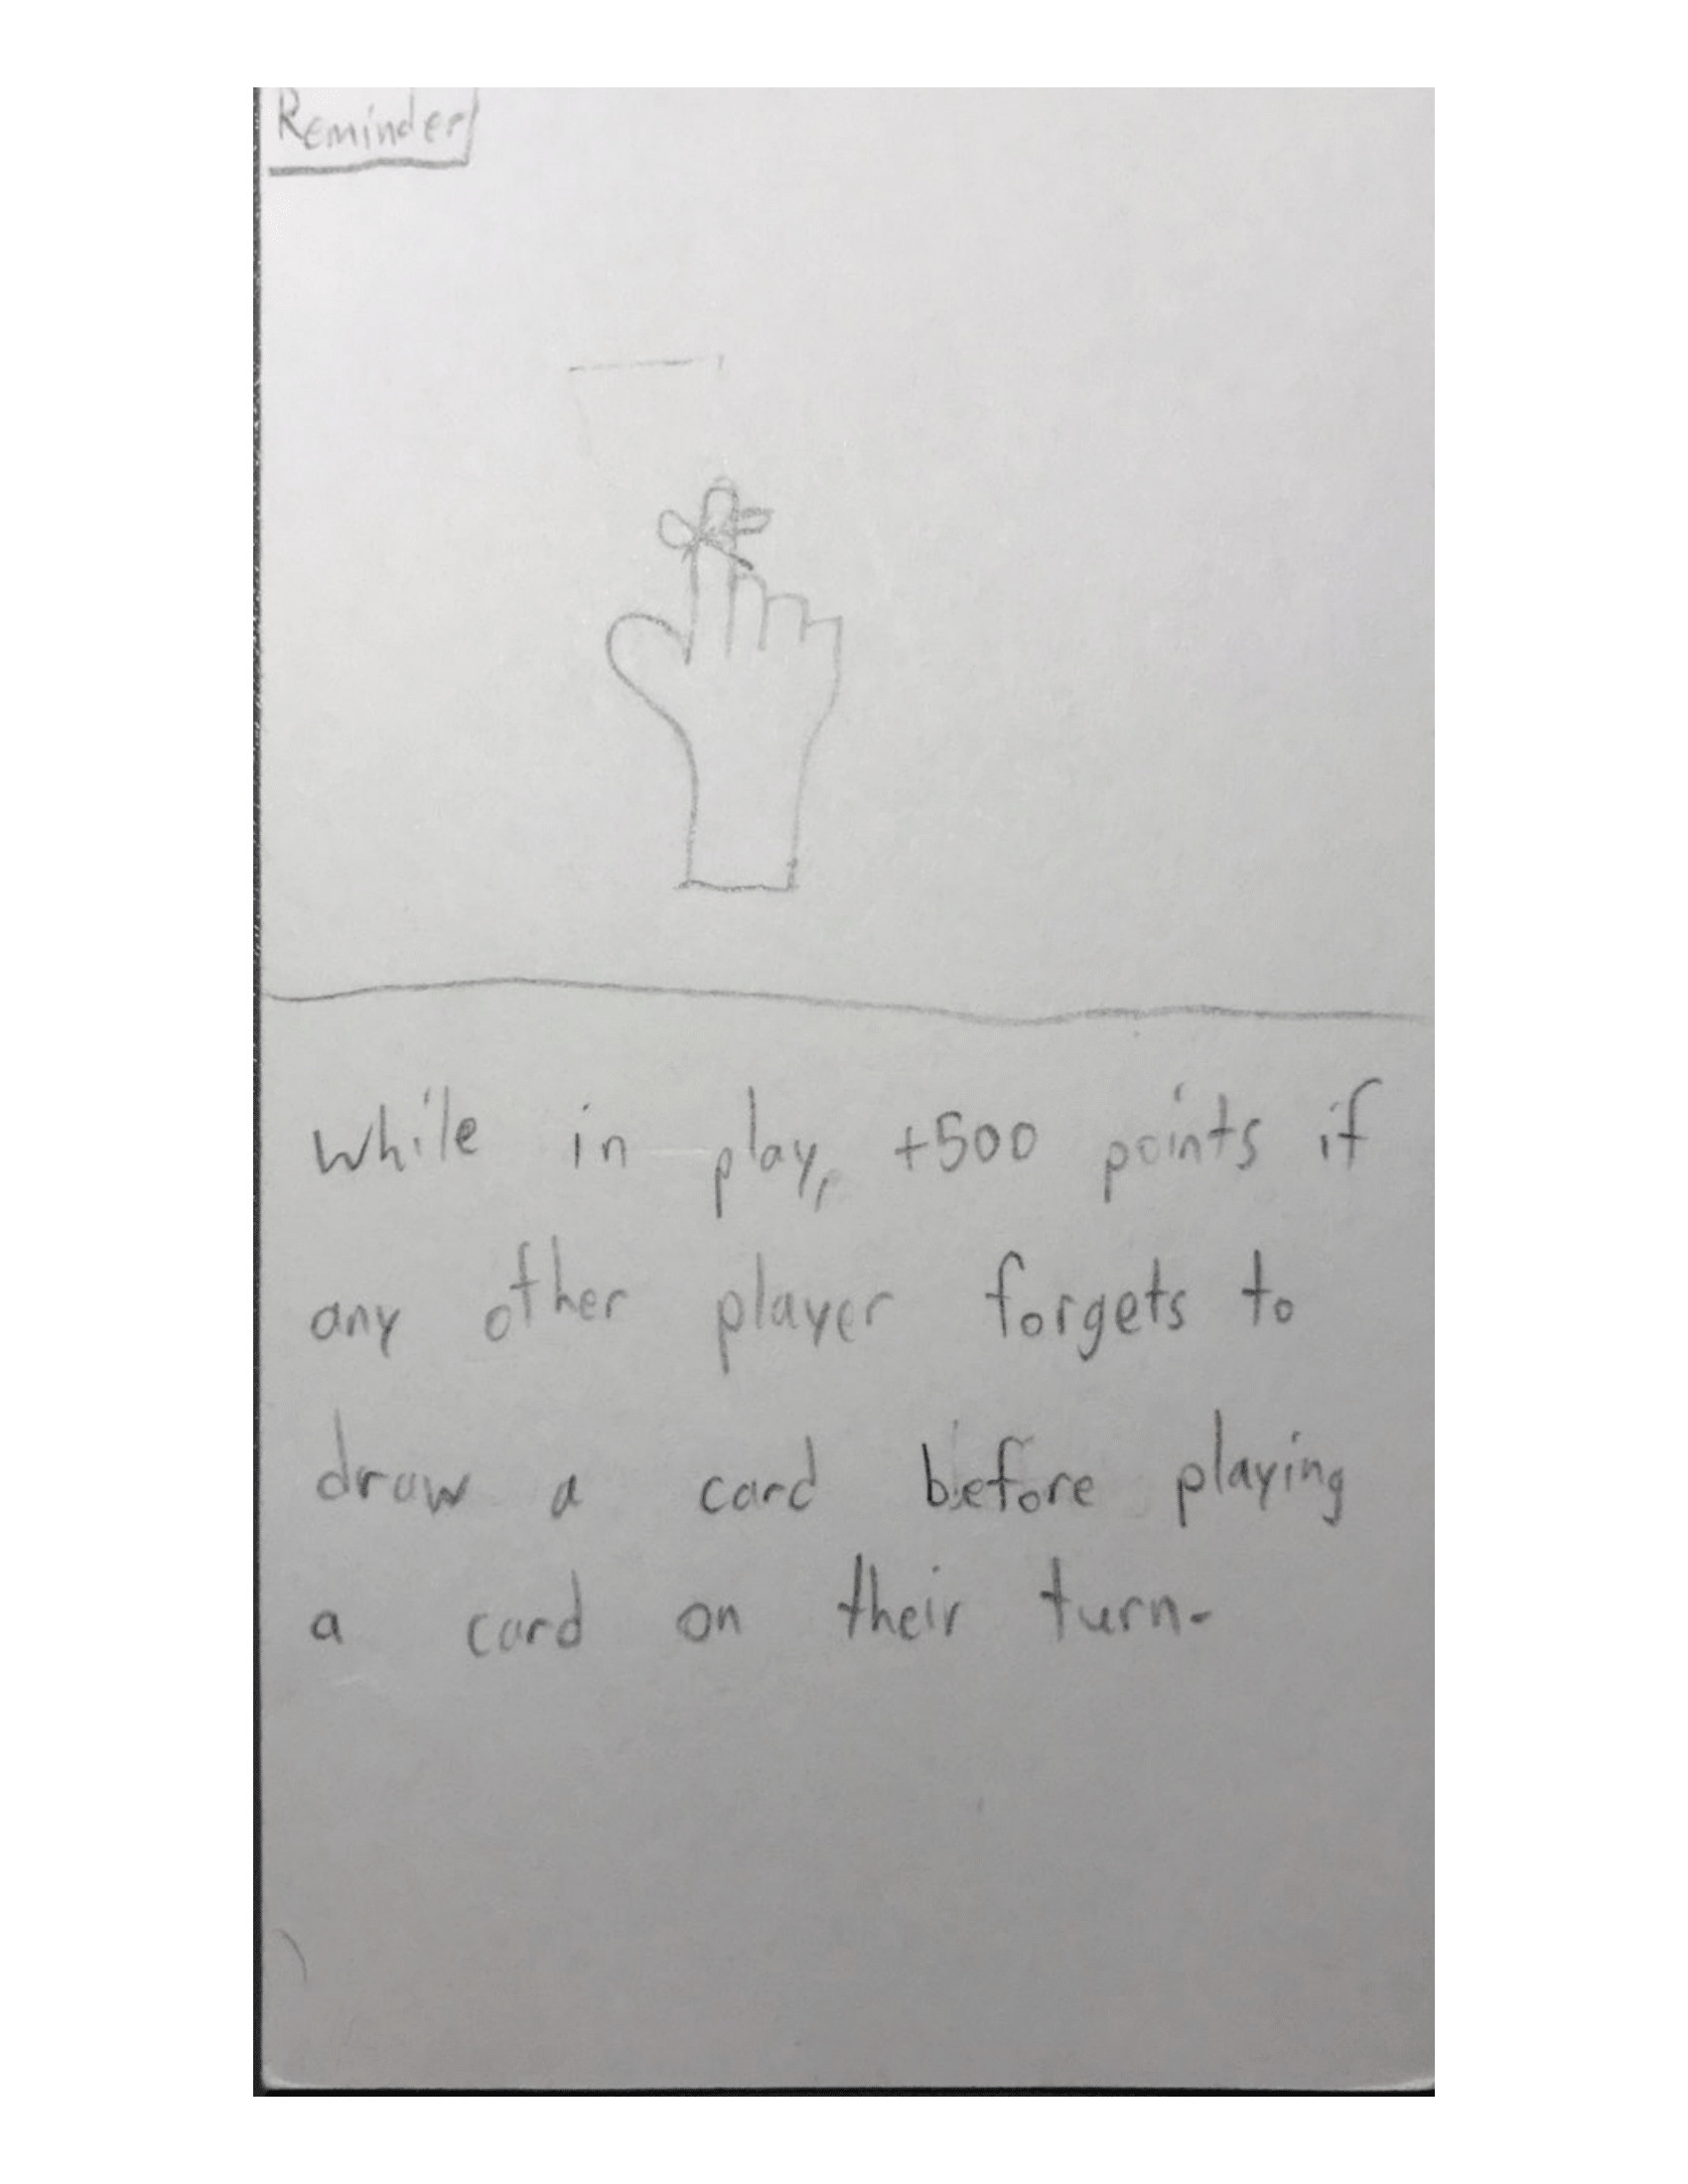 Reminder
While in play, +500 points if
any other player forgets to
draw a card before playing
a card on their turn.